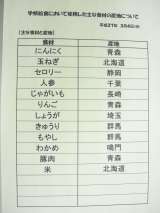 学校給食において使用した主な食材の産地について
平成27年 3月4日(水)
【主な食材と産地】
食材 産地
にんにく 青森
玉ねぎ 北海道
セロリー 静岡
人参 千葉
じゃがいも 長崎
りんご 青森
しょうが 埼玉
きゅうり 群馬
もやし 群馬
わかめ 鳴門
豚肉 青森
米 北海道